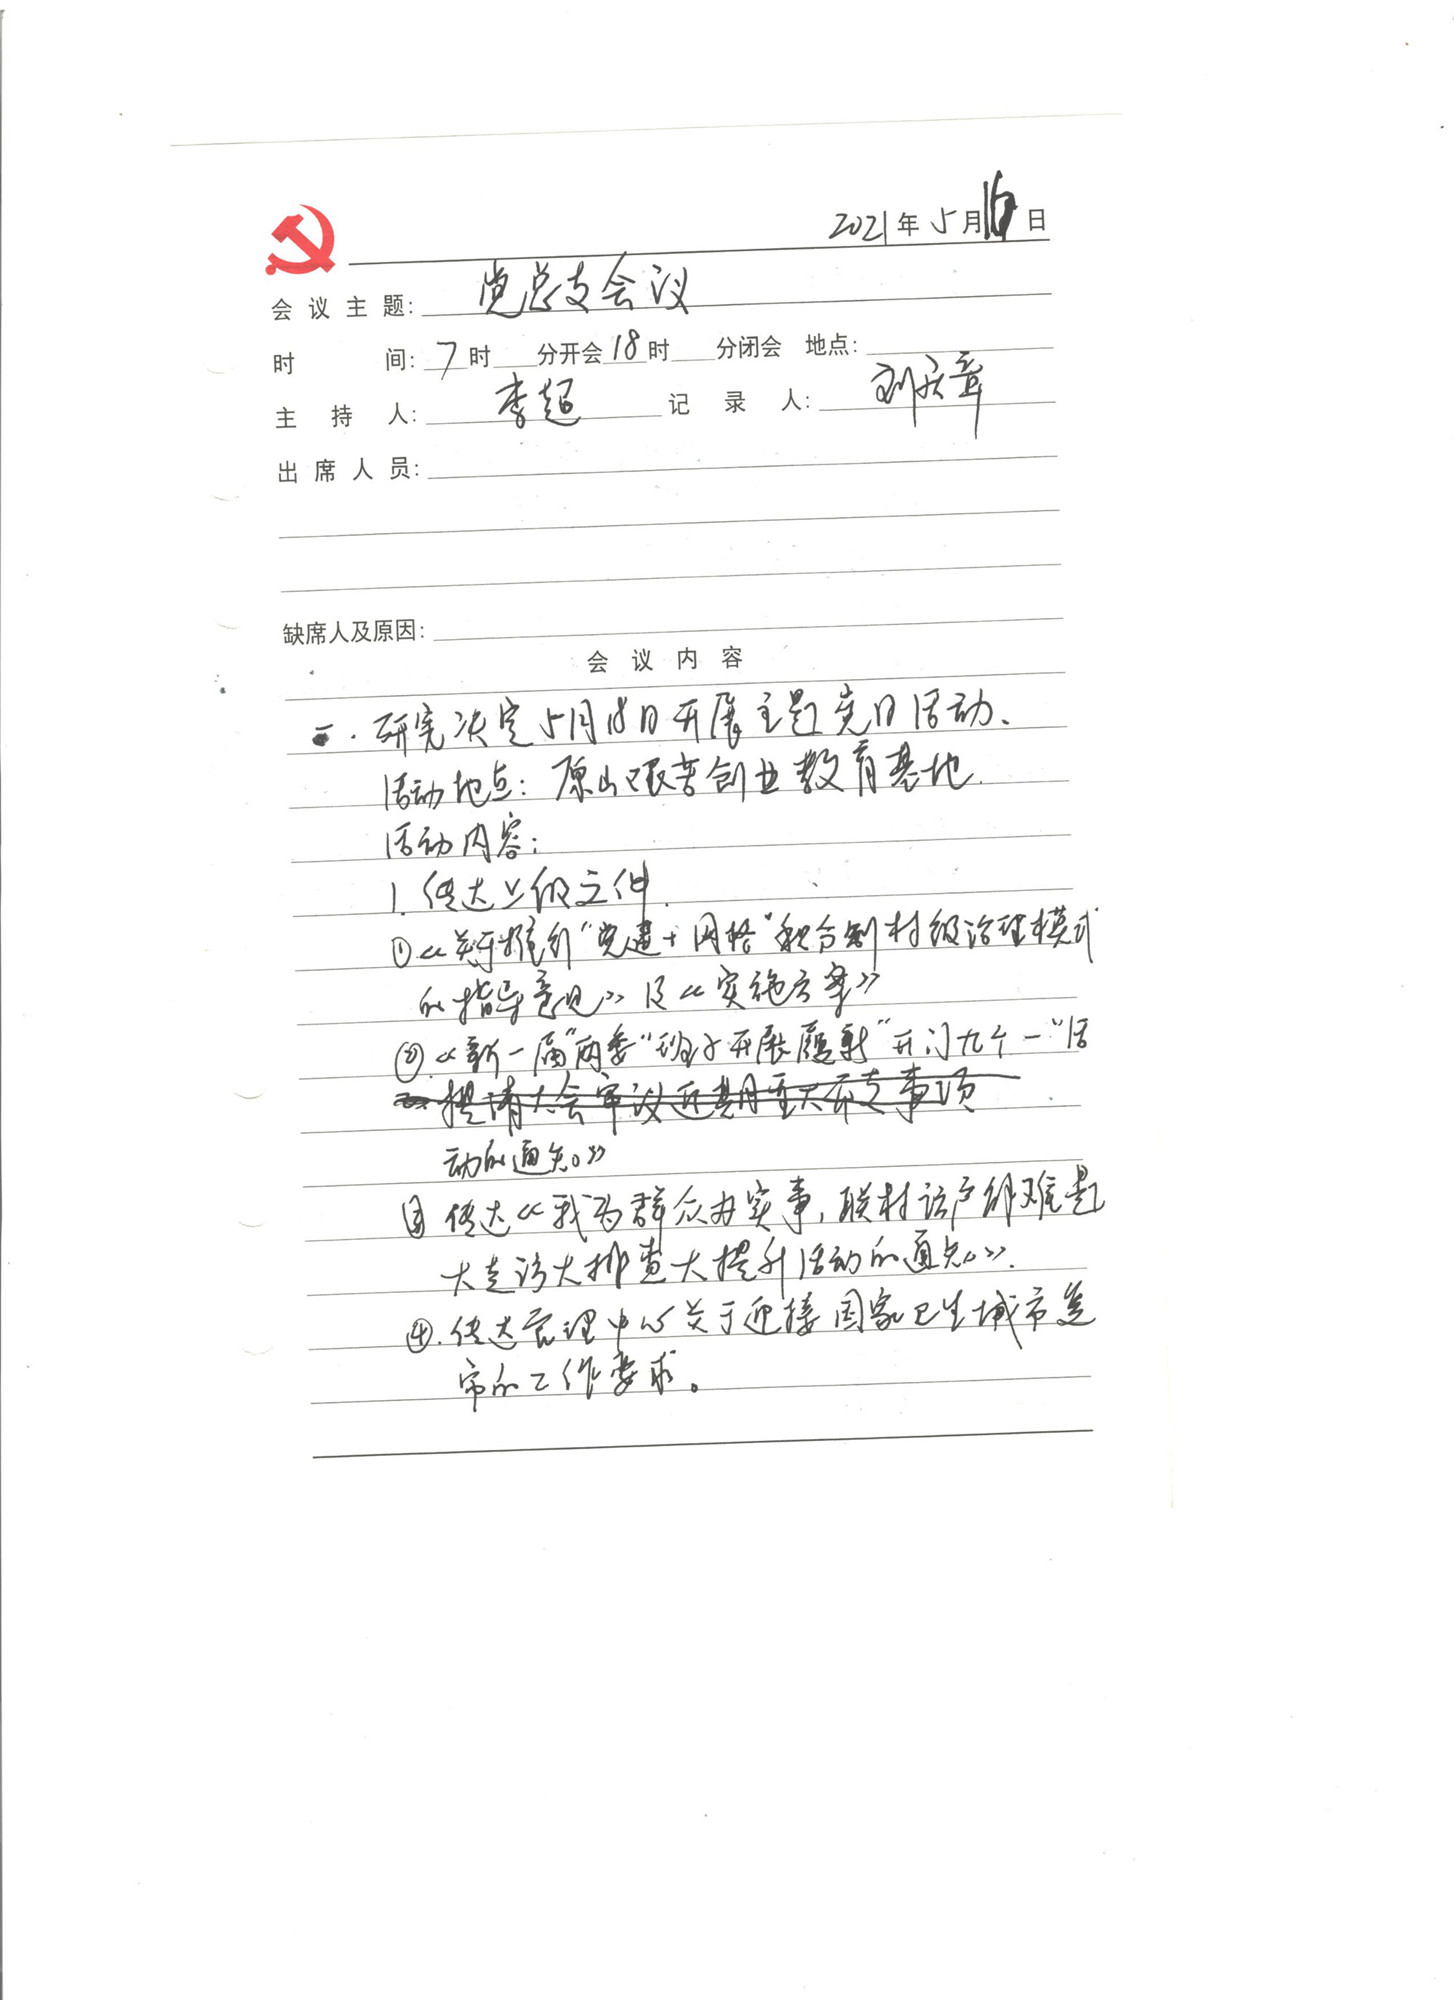 2021年5月16日
会议主题：党总支会议
时间：7时 分开会18时 分闭会 地点：
主持人：李超 记录人：刘庆章
出席人员：
缺席人及原因：
会议内容
二.研究决定5月18日开展主题党日活动、
活动地点：原山艰苦创业教育基地.
活动内容：
1.传达上级文件.
①《关于推行"党建+网格"积分制村级治理模式
的指导意见》及《实施方案》
②.《新一届"两委"班子开展履新"开门九个一"活
提请大会审议近期重大开支事项
动的通知》
③传达《我为群众办实事,联村访户解难题
大走访大排查大提升活动的通知》.
④.传达管理中心关于迎接国家卫生城市复
审的工作要求。